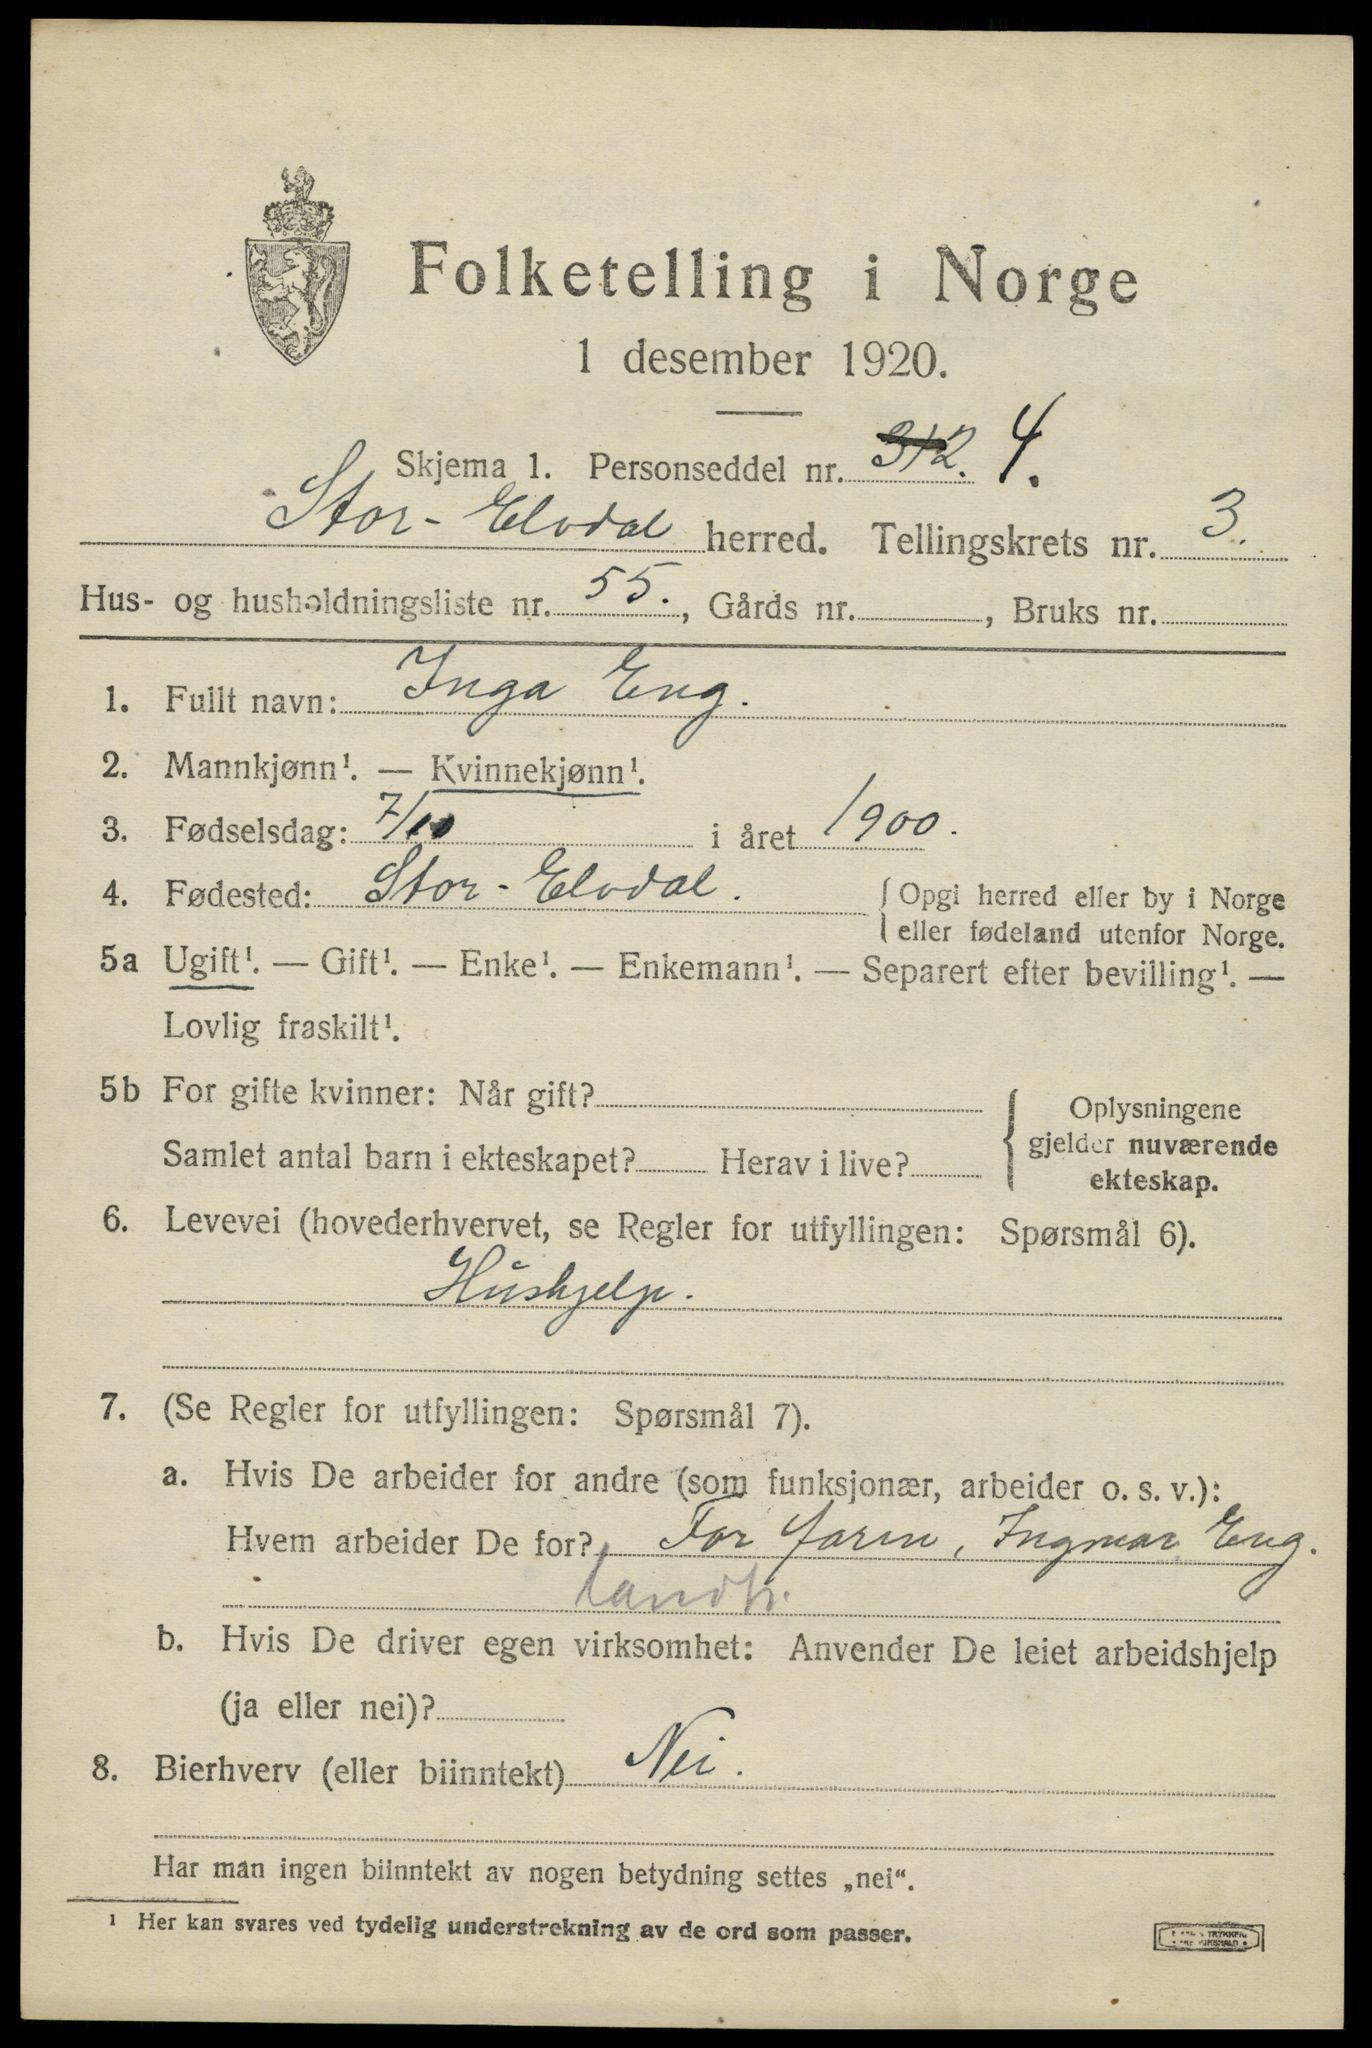 Folketelling i Norge
1 desember 1920.
Skjema 1. Personseddel nr. 312. 4.
Stor-Elvdal herred. Tellingskrets nr. 3.
Hus- og husholdningsliste nr. 55., Gårds nr. , Bruks nr.
1. Fullt navn: Inga Eng.
2. Mannkjønn¹. — Kvinnekjønn¹.
3. Fødselsdag: 7/10 i året 1900.
4. Fødested: Stor-Elvdal. { Opgi herred eller by i Norge
eller fødeland utenfor Norge.
5a Ugift¹. — Gift¹. — Enke¹. — Enkemann¹. — Separert efter bevilling¹. —
Lovlig fraskilt¹.
5b For gifte kvinner: Når gift?
Samlet antal barn i ekteskapet? Herav i live?
Oplysningene
gjelder nuværende
ekteskap.
6. Levevei (hovederhvervet, se Regler for utfyllingen: Spørsmål 6).
Hushjelp.
7. (Se Regler for utfyllingen: Spørsmål 7).
a. Hvis De arbeider for andre (som funksjonær, arbeider o. s. v.):
Hvem arbeider De for? For farm, Ingmar Eng.
landh.
b. Hvis De driver egen virksomhet: Anvender De leiet arbeidshjelp
(ja eller nei)?
8. Bierhverv (eller biinntekt) Nei.
Har man ingen biinntekt av nogen betydning settes „nei“.
¹ Her kan svares ved tydelig understrekning av de ord som passer.